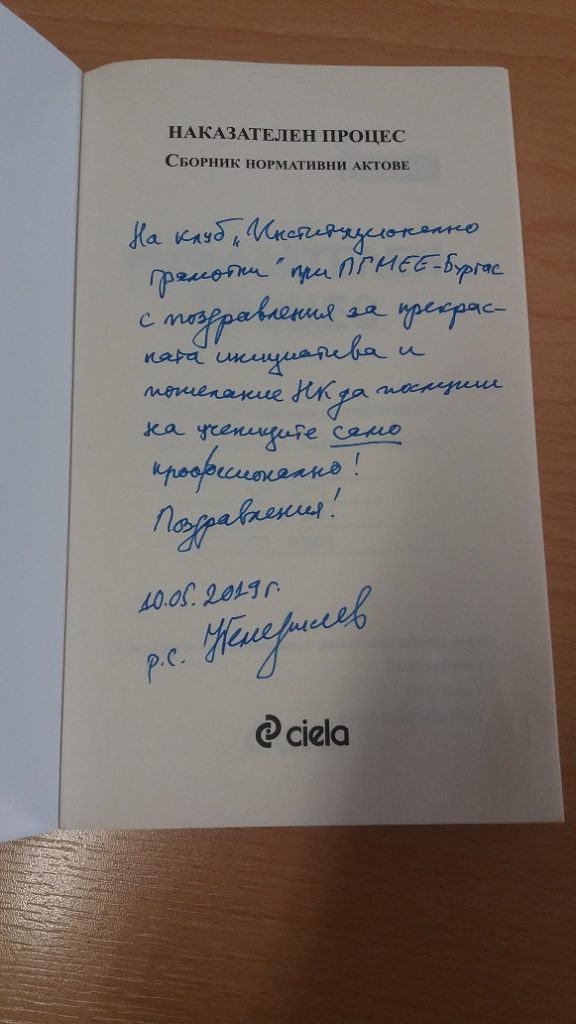 НАКАЗАТЕЛЕН ПРОЦЕС
СБОРНИК НОРМАТИВНИ АКТОВЕ
На клуб „Институционално
грамотни" при ПГМЕЕ-Бургас
с поздравления за прекрас-
ната инициатива и
пожелание НК да послужи
на учениците само
професионално!
Поздравления!
10.05.2019г.
р.с.
ciela